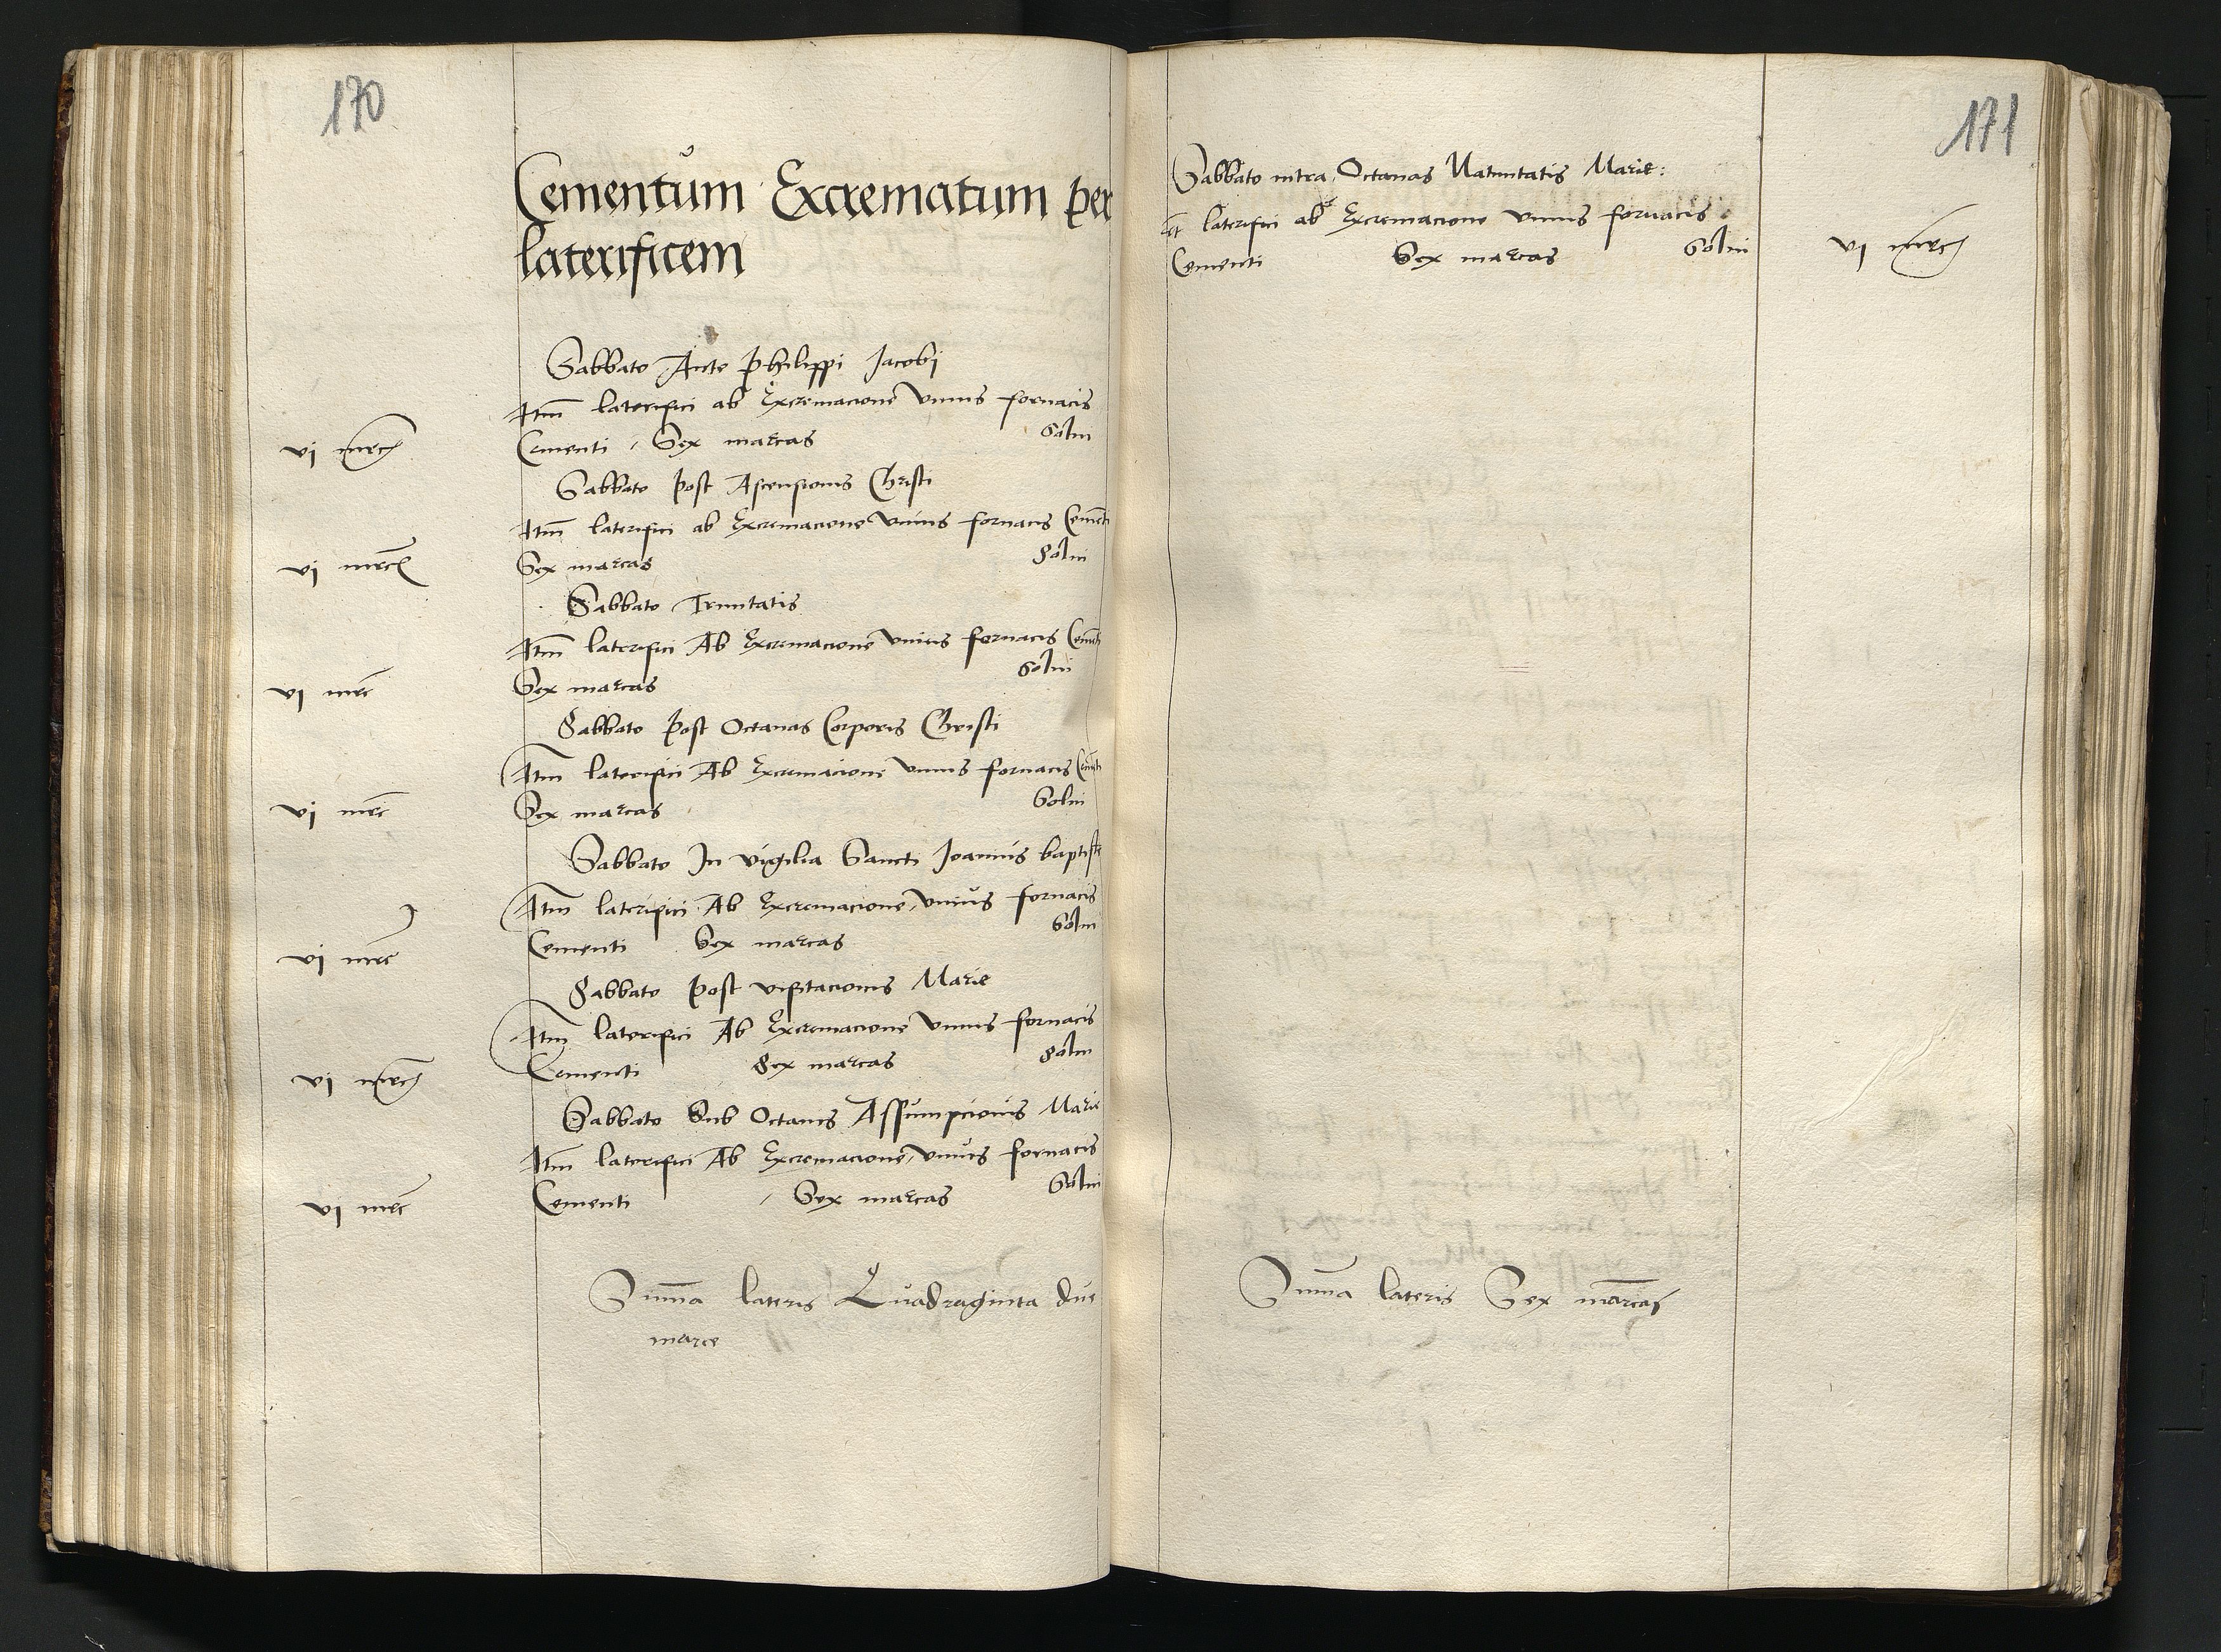 170
Cementum Excrematum per
laterificem
Sabbato Ante Philippi Jacobi
Itm laterifici ab Excremacione vnius fornacis
Cementi Sex marcas Solui
vj mrc
Sabbato post Ascensionis Christi
Itm laterifici ab Excremacione vnius fornacis Cementi
Sex marcas Solui
vj mrc
Sabbato Trinitatis
Itm laterifici Ab Excremacione vnius fornacis Cementi
Sex marcas Solui
vj mrc
Sabbato post Octauas Corporis Christi
Itm laterifici Ab Excremacione vnius fornacis Cementi
Sex marcas Solui
vj mrc
Sabbato In vigilia Sancti Joannis baptiste
Itm laterifici Ab Excremacione vnius fornacis
Cementi Sex marcas Solui
vj mrc
Sabbato post visitacionis Marie
Itm laterifici Ab Excremacione vnius fornacis
Cementi Sex marcas Solui
vj mrc
Sabbato Sub Octauis Assumpcionis Marie
Itm laterifici Ab Excremacione vnius fornacis
Cementi Sex marcas Solui
vj mrc
Summa lateris Quadraginta due
marce
171
Sabbato intra Octauas Natiuitatis Marie:
laterifici ab Excremacione vnius fornacis
Cementi Sex marcas Solui
vj mrc
Summa lateris Sex marcas